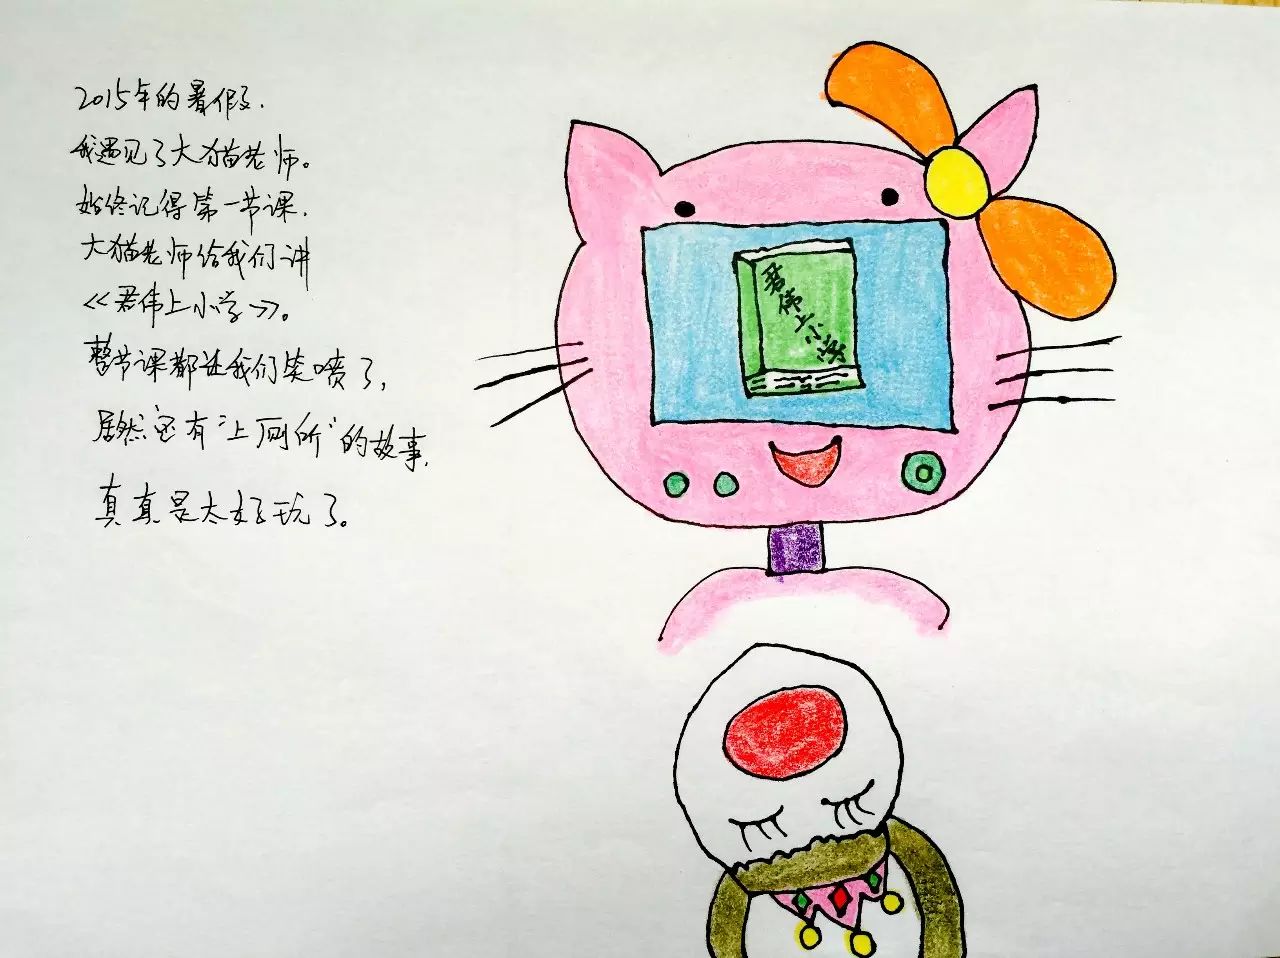 2015年的暑假.
我遇见了大猫老师。
始终记得第一节课.
大猫老师给我们讲
<<君伟上小学>>。
整节课都让我们笑喷了,
居然还有"上厕所"的故事.
真真是太好玩了。
君伟上小学